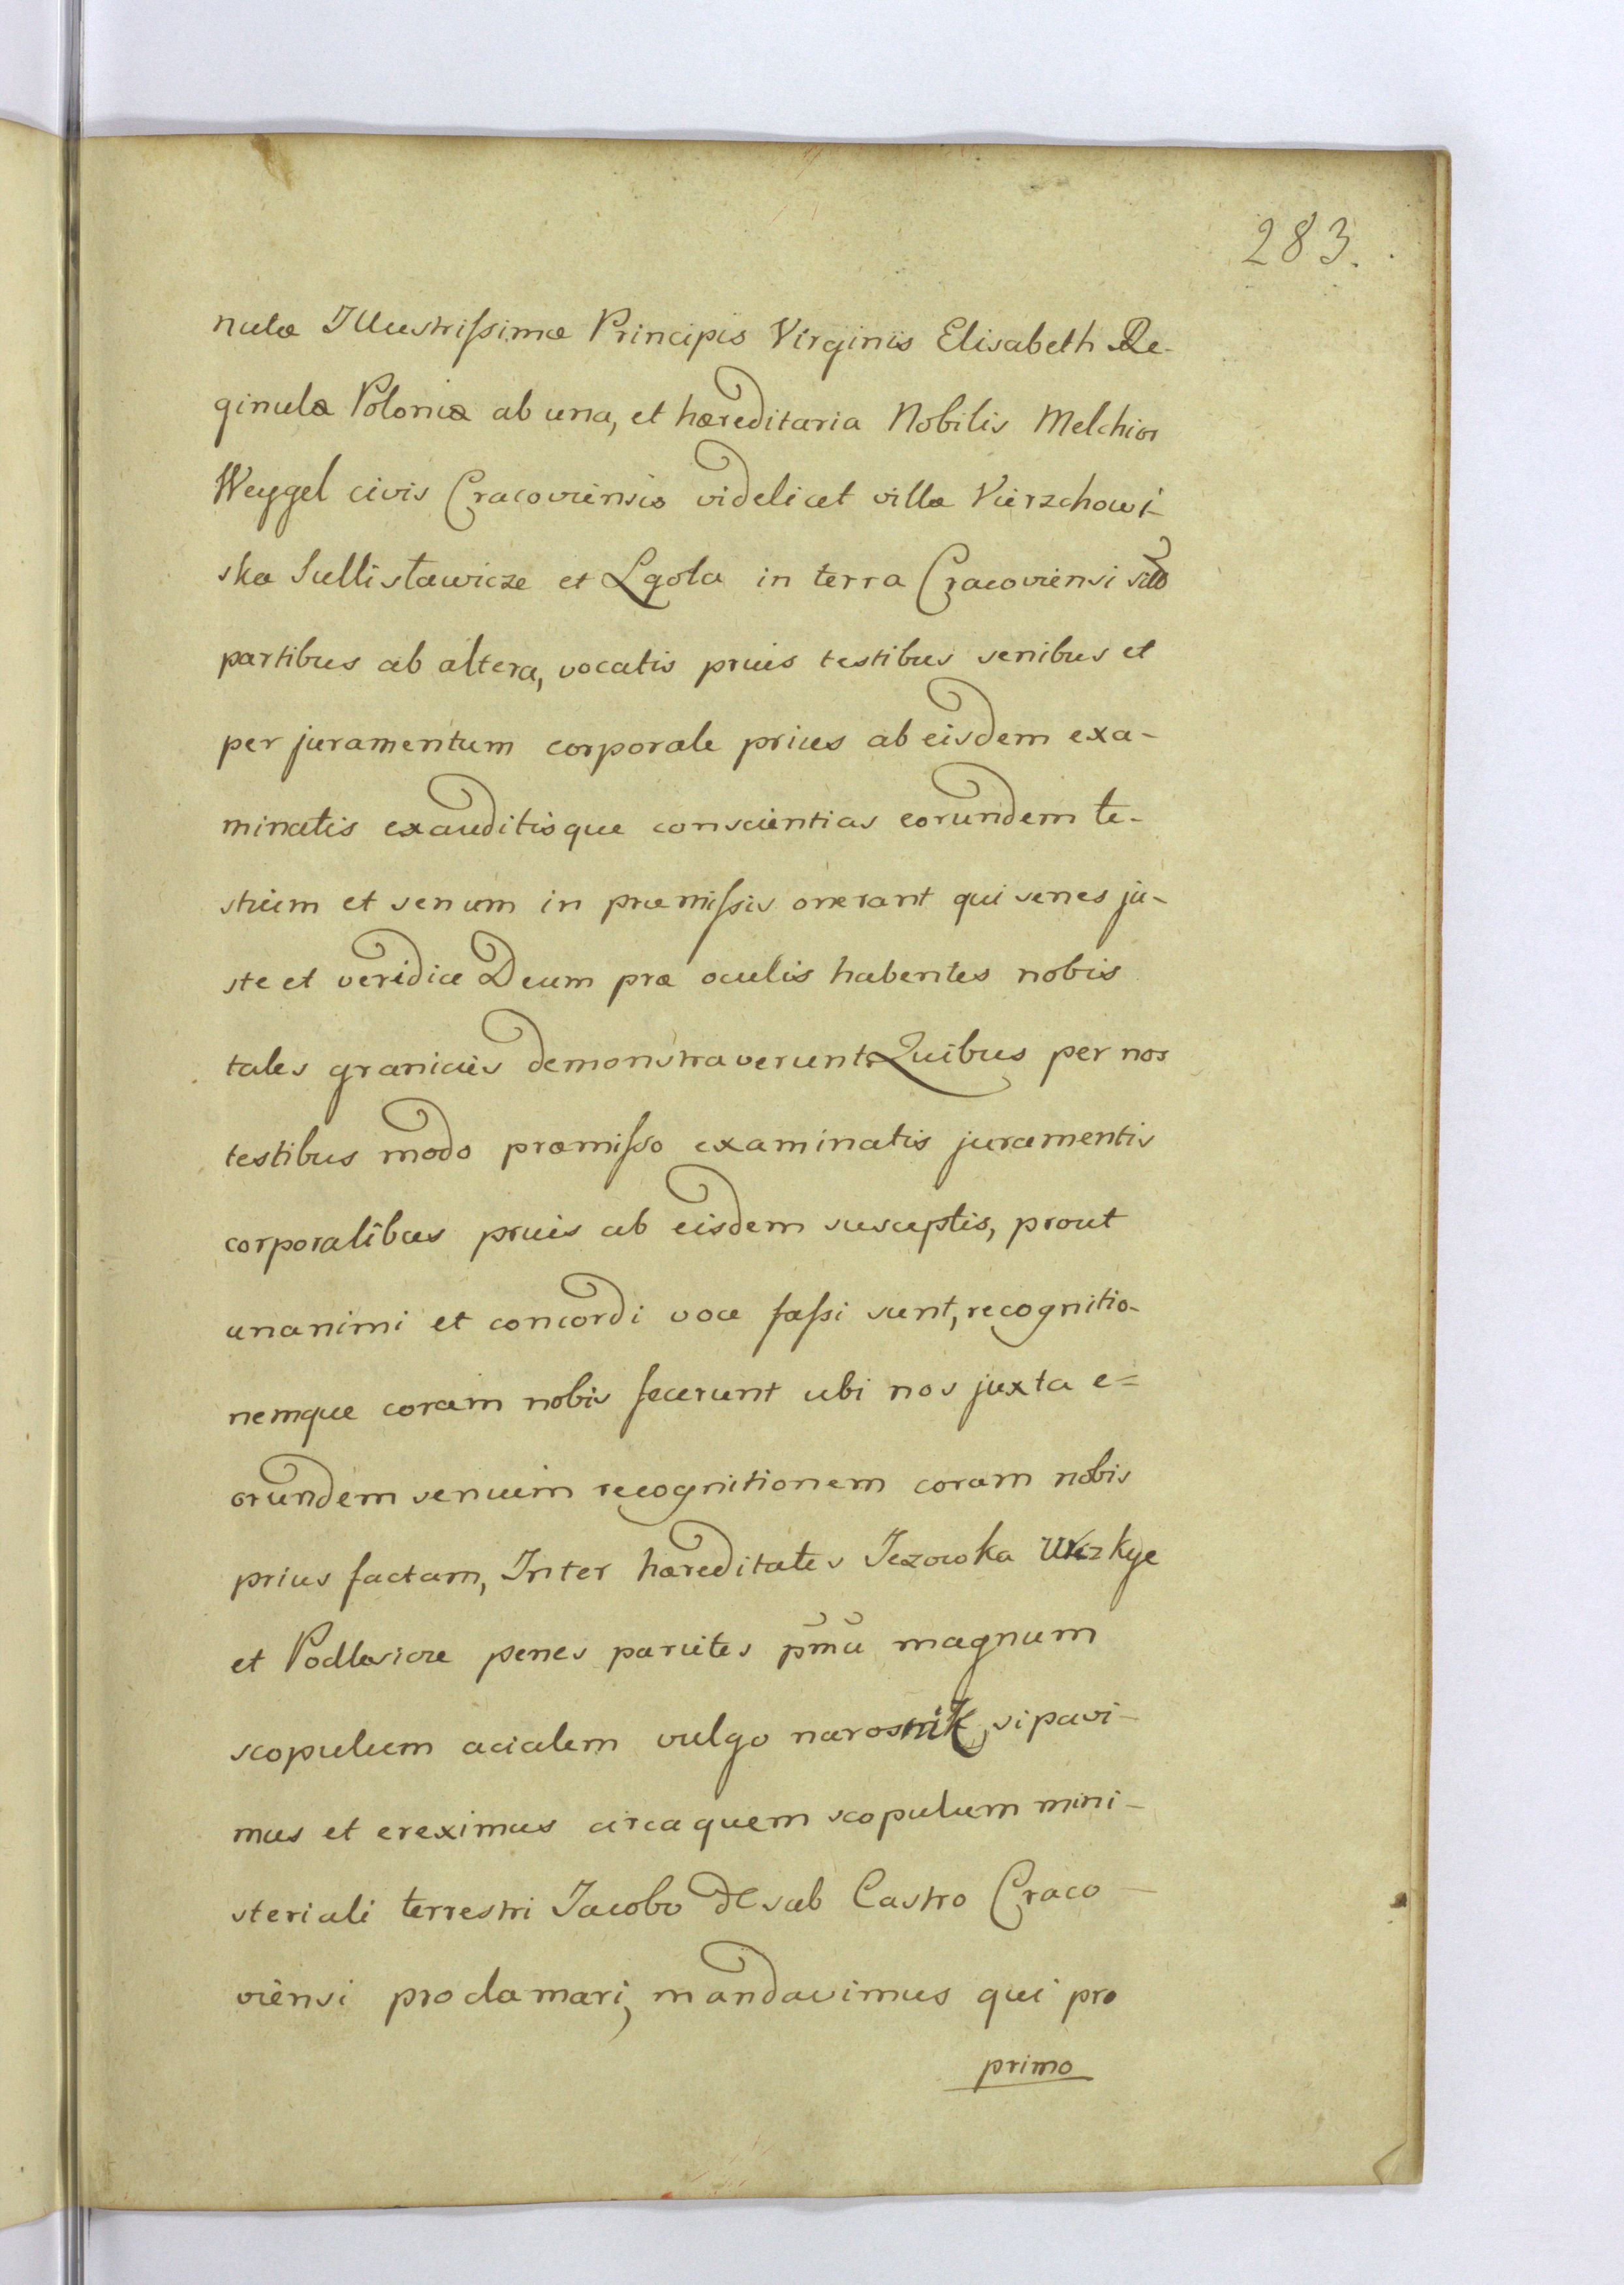 283.
nulæ Illustrißimæ Principis Virginis Elisabeth Re-
ginulæ Poloniæ ab una, et hæreditaria Nobilis Melchior
Weygel civis Cracoviensis videlicet villæ Vierzchowi-
ska Sullisławicze et Lgota in terra Cracoviensi
partibus ab altera, vocatis prius testibus senibus et
per juramentum corporale prius ab eisdem exa-
minatis exauditisque conscientias eorundem te-
stium et senum in præmißis onerant qui senes ju-
ste et veridice Deum præ oculis habentes nobis
tales granicies demonstraverunt Quibus per nos
testibus modo præmißo examinatis juramentis
corporalibus prius ab eisdem susceptis, prout
unanimi et concordi voce faßi sunt, recognitio-
nemque coram nobis fecerunt ubi nos juxta e=
orundem senum recognitionem coram nobis
prius factam, Inter hæreditates Jezowka
et Podlesicze penes parietes p̄mū magnum
scopulum acialem vulgo narosnik, sipavi-
mus et ereximus circa quem scopulum mini-
steriali terrestri Jacobo de sub Castro Craco-
viensi proclamari, mandavimus qui pro
primo